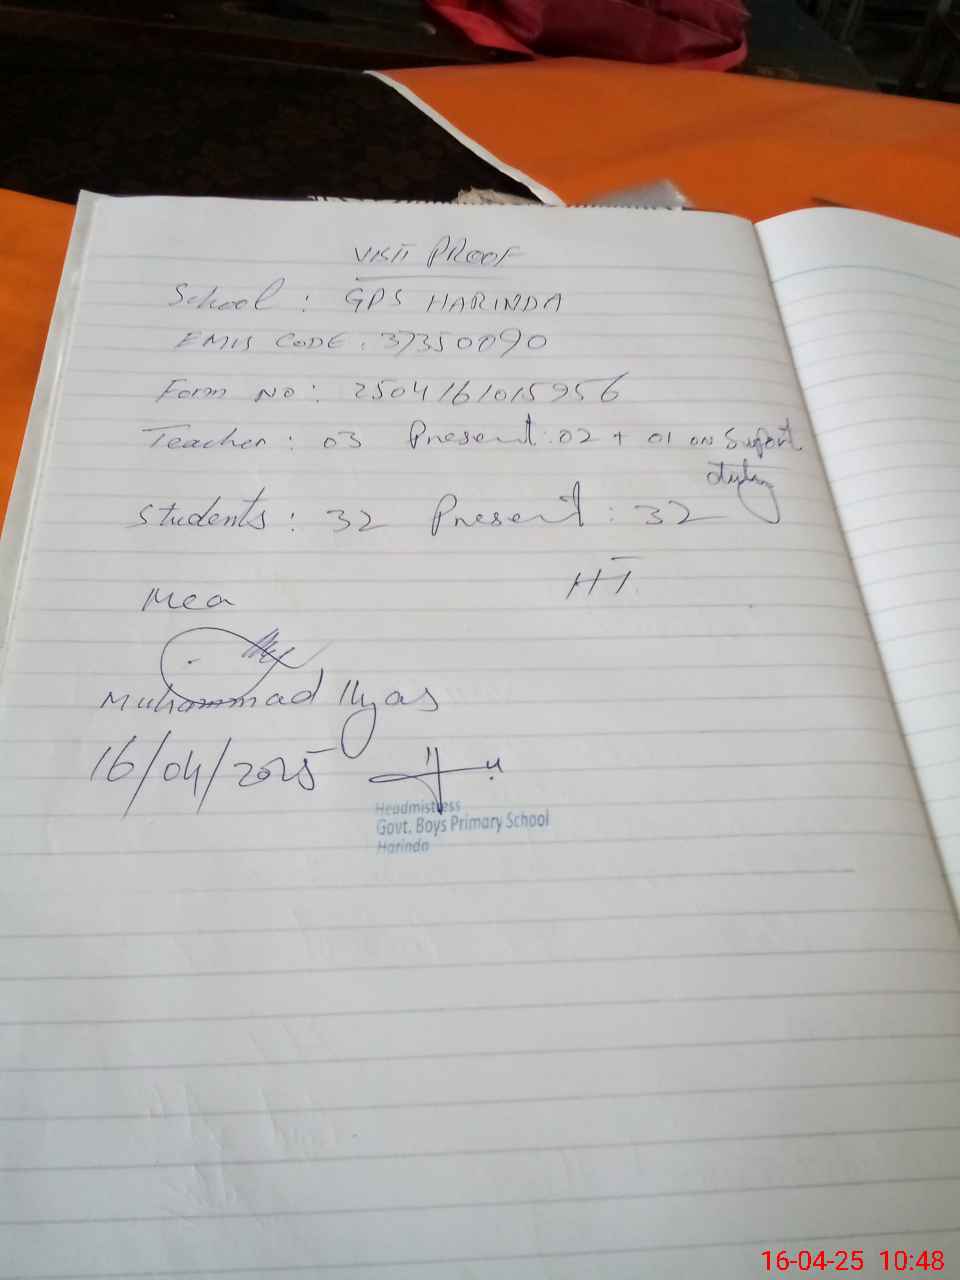 VISIT PROOF
School : GPS HARINDA
EMIS CODE : 37350090
Form NO : 2504161015956
Teacher : 03 Present : 02 + 01 on Suport
duty
Students : 32 Present : 32
HT
Mea
Muhammad Ilyas
16/04/2025
Headmistress
Govt. Boys Primary School
Harinda
16-04-25 10:48